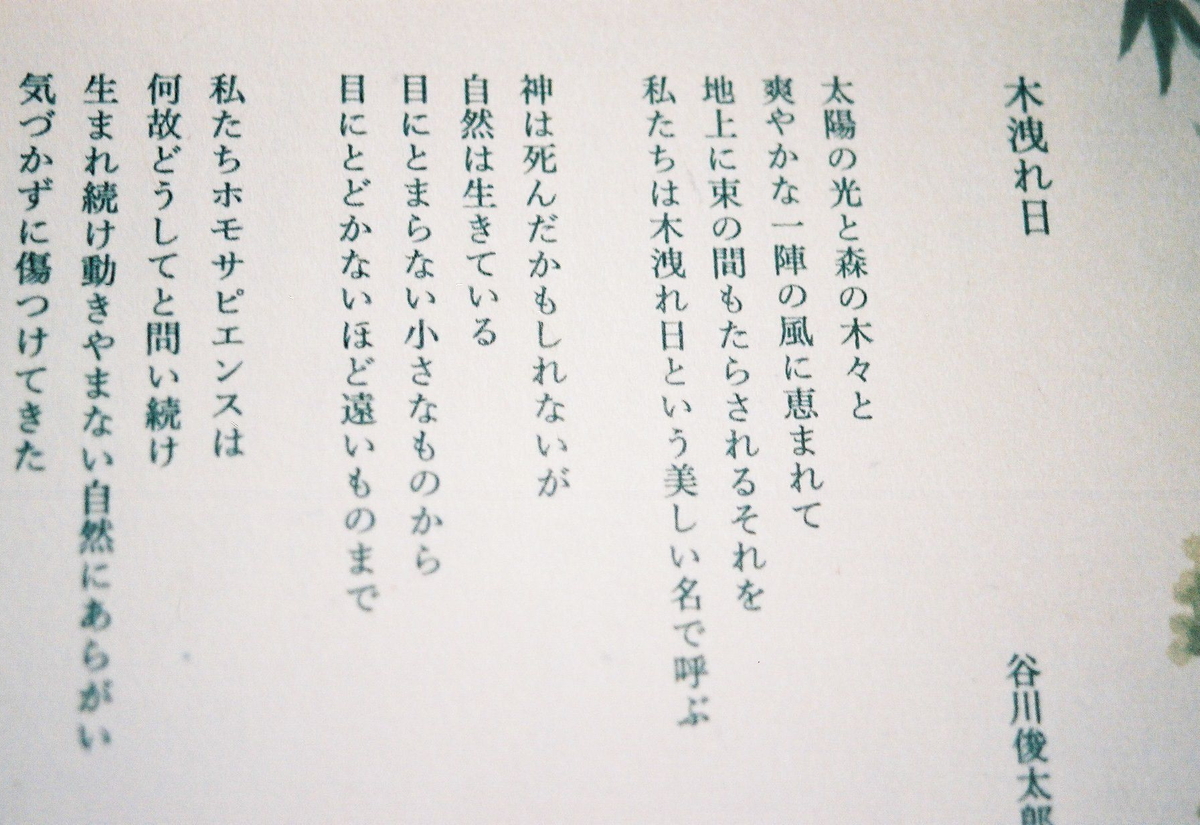 木洩れ日
谷川俊太郎
太陽の光と森の木々と
爽やかな一陣の風に恵まれて
地上に束の間もたらされるそれを
私たちは木洩れ日という美しい名で呼ぶ
神は死んだかもしれないが
自然は生きている
目にとまらない小さなものから
目にとどかないほど遠いものまで
私たちホモサピエンスは
何故どうしてと問い続け
生まれ続け動きやまない自然にあらがい
気づかずに傷つけてきた